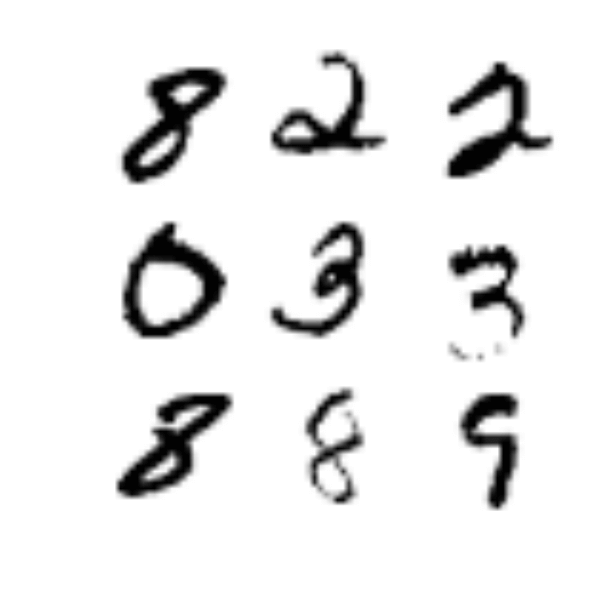 8 2 2
0 3 3
8 8 9